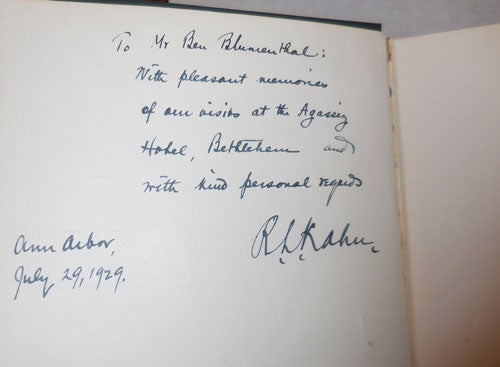 To Mr Ben Blumenthal:
With pleasant memories
of our visits at the Agassiz
Hotel, Bethlehem and
with kind personal regards
R.L.Kahn.
Ann Arbor,
July 29, 1929.